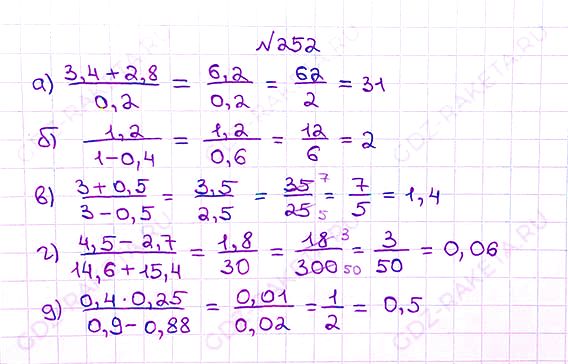 №252
а) (3,4 + 2,8)/0,2 = 6,2/0,2 = 62/2 = 31
б) 1,2/(1-0,4) = 1,2/0,6 = 12/6 = 2
в) (3 + 0,5)/(3 - 0,5) = 3,5/2,5 = 35 7/25 5 = 7/5 = 1,4
г) (4,5 - 2,7)/(14,6 + 15,4) = 1,8/30 = 18 3/300 50 = 3/50 = 0,06
д) (0,4 · 0,25)/(0,9 - 0,88) = 0,01/0,02 = 1/2 = 0,5
GDZ-RAKETA.RU